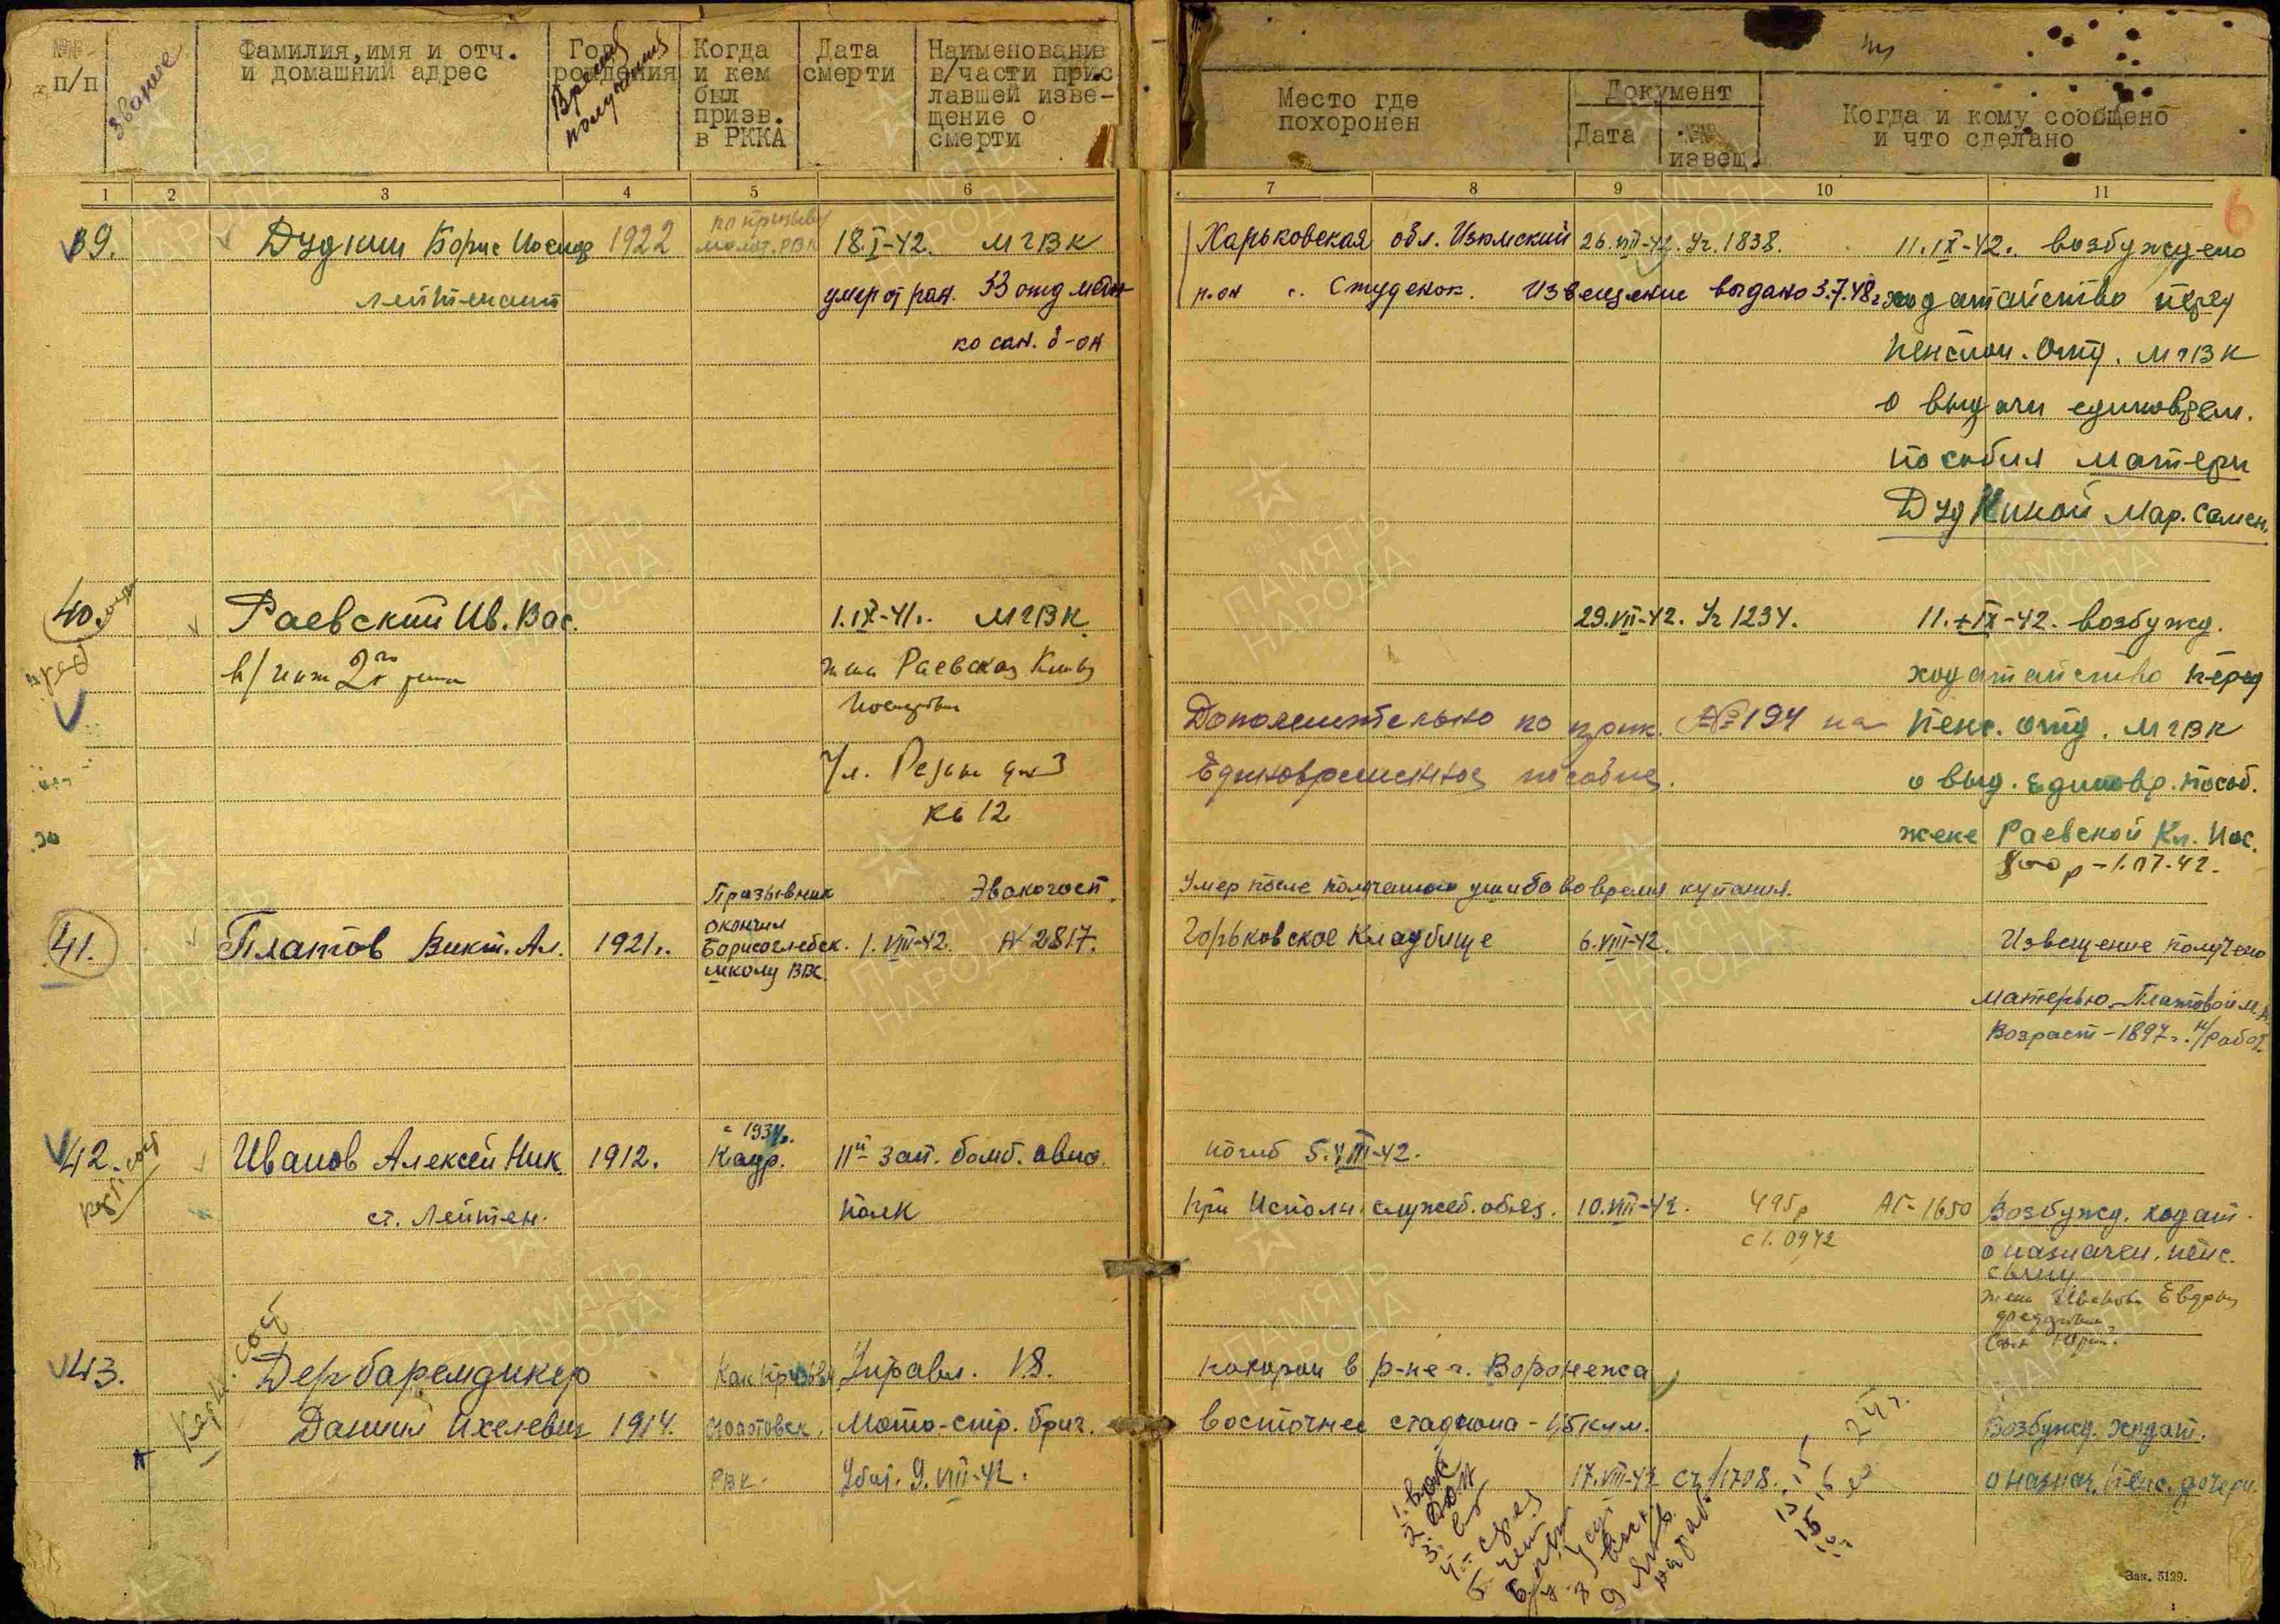 №№ п/п
Звание
Фамилия, имя и отч. и домашний адрес
Год рождения
Время получения
Когда и кем был призв. в РККА
Дата смерти
Наименование в/части прис лавшей изве- щение о смерти
Место где похоронен
Документ
Дата
№№ извещ.
Когда и кому сообщено и что сделано
1 2 3 4 5 6 7 8 9 10 11
6
39. Дудкин Борис Иосиф 1922 по призыву 18.I-42. МГВК
лейтенант Молот. РВК умер от ран. 33 отд мед
ко сан. б-он
Харьковская обл. Изюмский 26.VIII-42. Уч. 1838. 11.IX-42. возбуждено
р.он с. Студенок. Извещение выдано 3.7.48г ходатайство перед
пенсион. Отд. МГВК
о выдачи единоврем.
пособия матери
Дудкиной Мар. Семен.
40. Раевский Ив. Вас. 1.IX-41г. МГВК
в/инж 2го жена Раевская
Ул. д 3
кв 12
29.VII-42. Уч 1234. 11.IX-42. возбужд.
ходатайство перед
Дополнительно по прик. №194 на пенс. отд. МГВК
Единовременное пособие. о выд. Единовр. пособ.
жене Раевской Кл. Иос.
41. Платов Викт. Ал. 1921г. Призывник окончил Борисоглебск. школу ВВС 1.VIII-42. Эвакогосп. № 2817.
Умер после полученного ушиба во время купания.
Горьковское Кладбище 6.VIII-42. Извещение получено
матерью Платовой М.
Возраст - 1897 г. н/работ.
42. Иванов Алексей Ник 1912. с 1934г. Кадр. 11й зап. бомб. авиа.
ст. Лейтен. полк
погиб 5.VIII-42.
при Исполн. служеб. обяз. 10.VIII-42. 495р АГ-1650 Возбужд. ходат.
с 1.0942 о назначен. пенс.
сыну
жена Иванова
сын Юрий
43. Дербаремдикер Управл. 18.
Даниил Ихелевич 1914. Мото-стр. бриг.
РВК Убит. 9.VIII-42.
похорон в р-не г. Воронежа
восточнее стадиона - 1,5 клм. Возбужд. ходат.
17.VIII-42 сч/1708. о назнач. пенс. дочери.
Зак. 5129.
ПАМЯТЬ НАРОДА